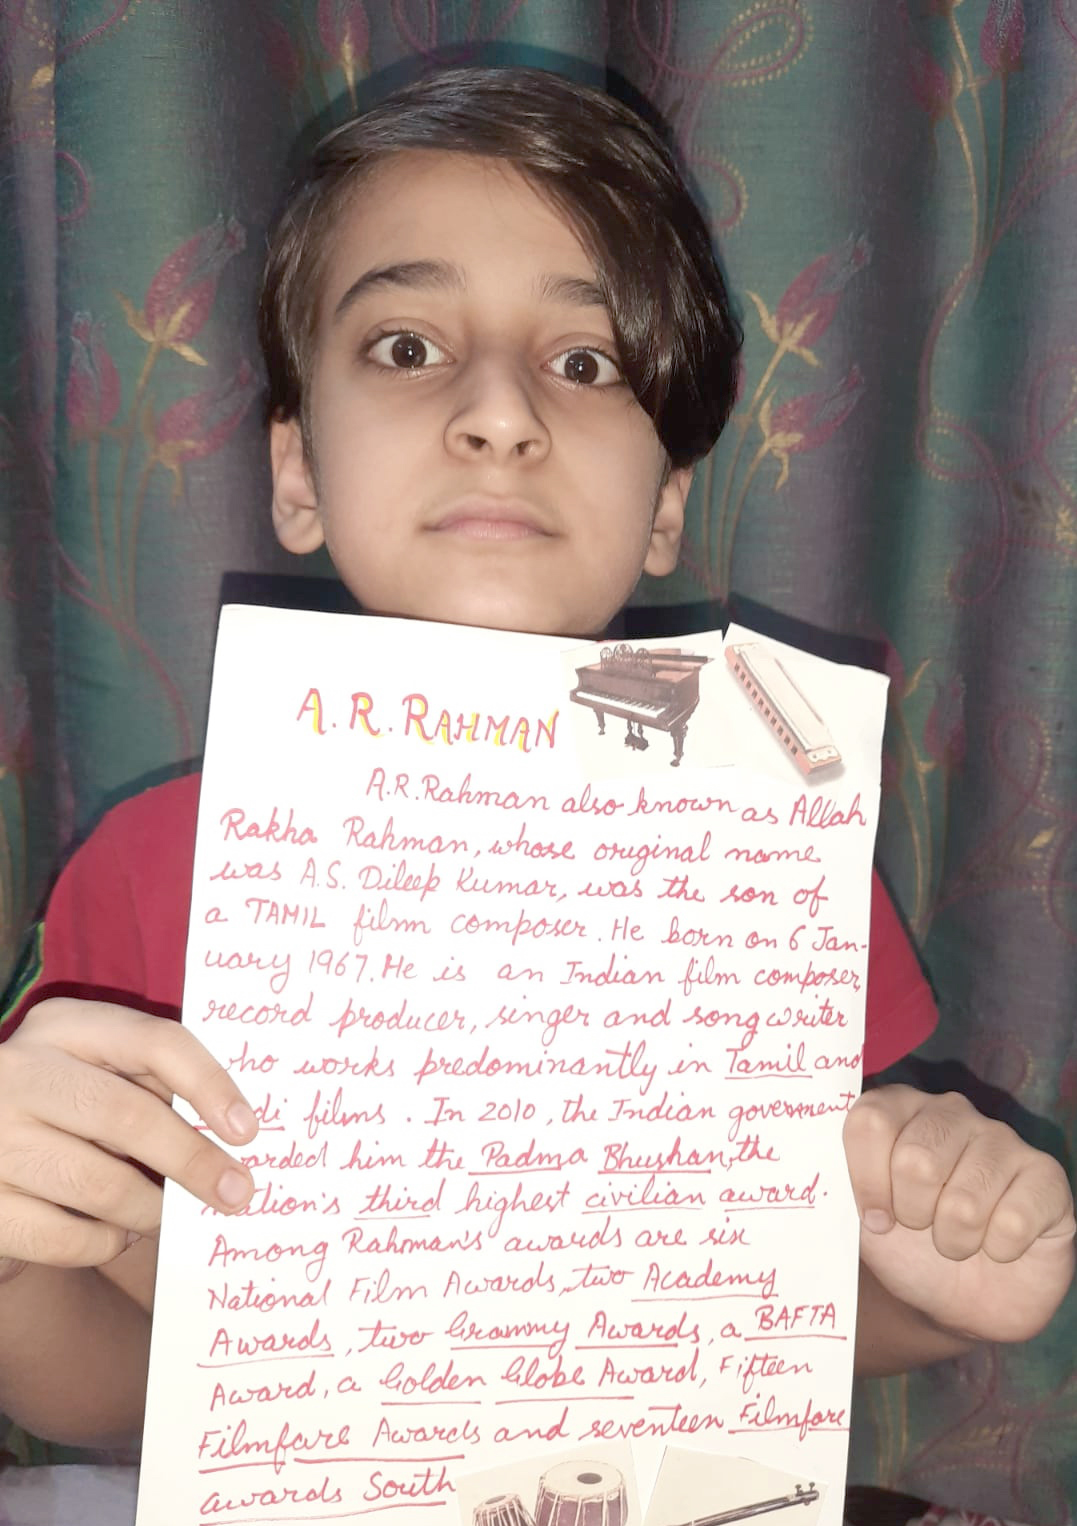 A. R. RAHMAN
A.R. Rahman also known as Allah
Rakha Rahman, whose original name
was A.S. Dileep Kumar, was the son of
a TAMIL film composer. He born on 6 Jan-
uary 1967. He is an Indian film composer,
record producer, singer and songwriter
who works predominantly in Tamil and
di films. In 2010, the Indian government
arded him the Padma Bhushan, the
nation's third highest civilian award.
Among Rahman's awards are six
National Film Awards, two Academy
Awards, two Grammy Awards, a BAFTA
Award, a Golden Globe Award, Fifteen
Filmfare Awards and seventeen Filmfare
awards South